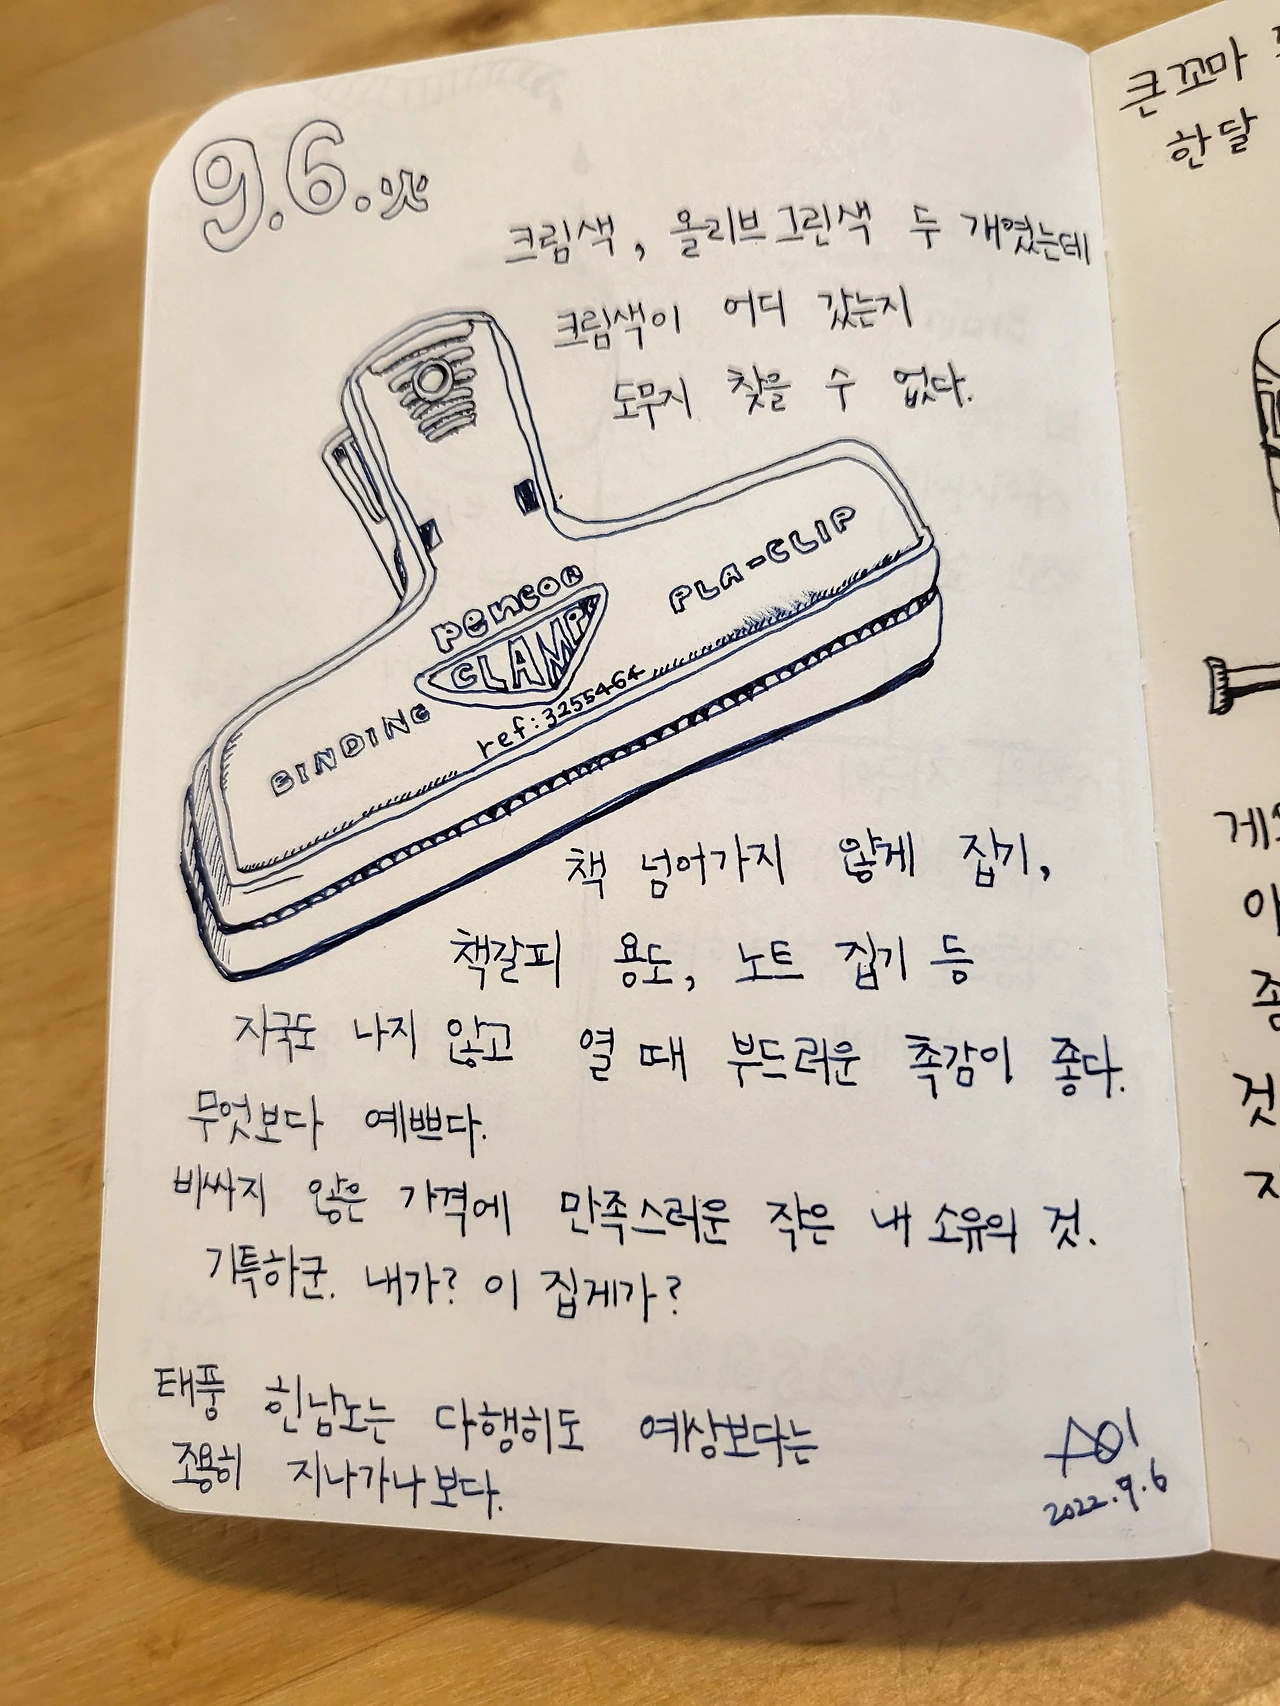 9.6.火
크림색, 올리브그린색 두 개였는데
크림색이 어디 갔는지
도무지 찾을 수 없다.
penco®
CLAMPY
PLA-CLIP
BINDING
ref:3255464
책 넘어가지 않게 집기,
책갈피 용도, 노트 집기 등
자국도 나지 않고 열 때 부드러운 촉감이 좋다.
무엇보다 예쁘다.
비싸지 않은 가격에 만족스러운 작은 내 소유의 것.
기특하군. 내가? 이 집게가?
태풍 힌남노는 다행히도 예상보다는
조용히 지나가나보다.
2022.9.6
큰꼬마
한달
게
것